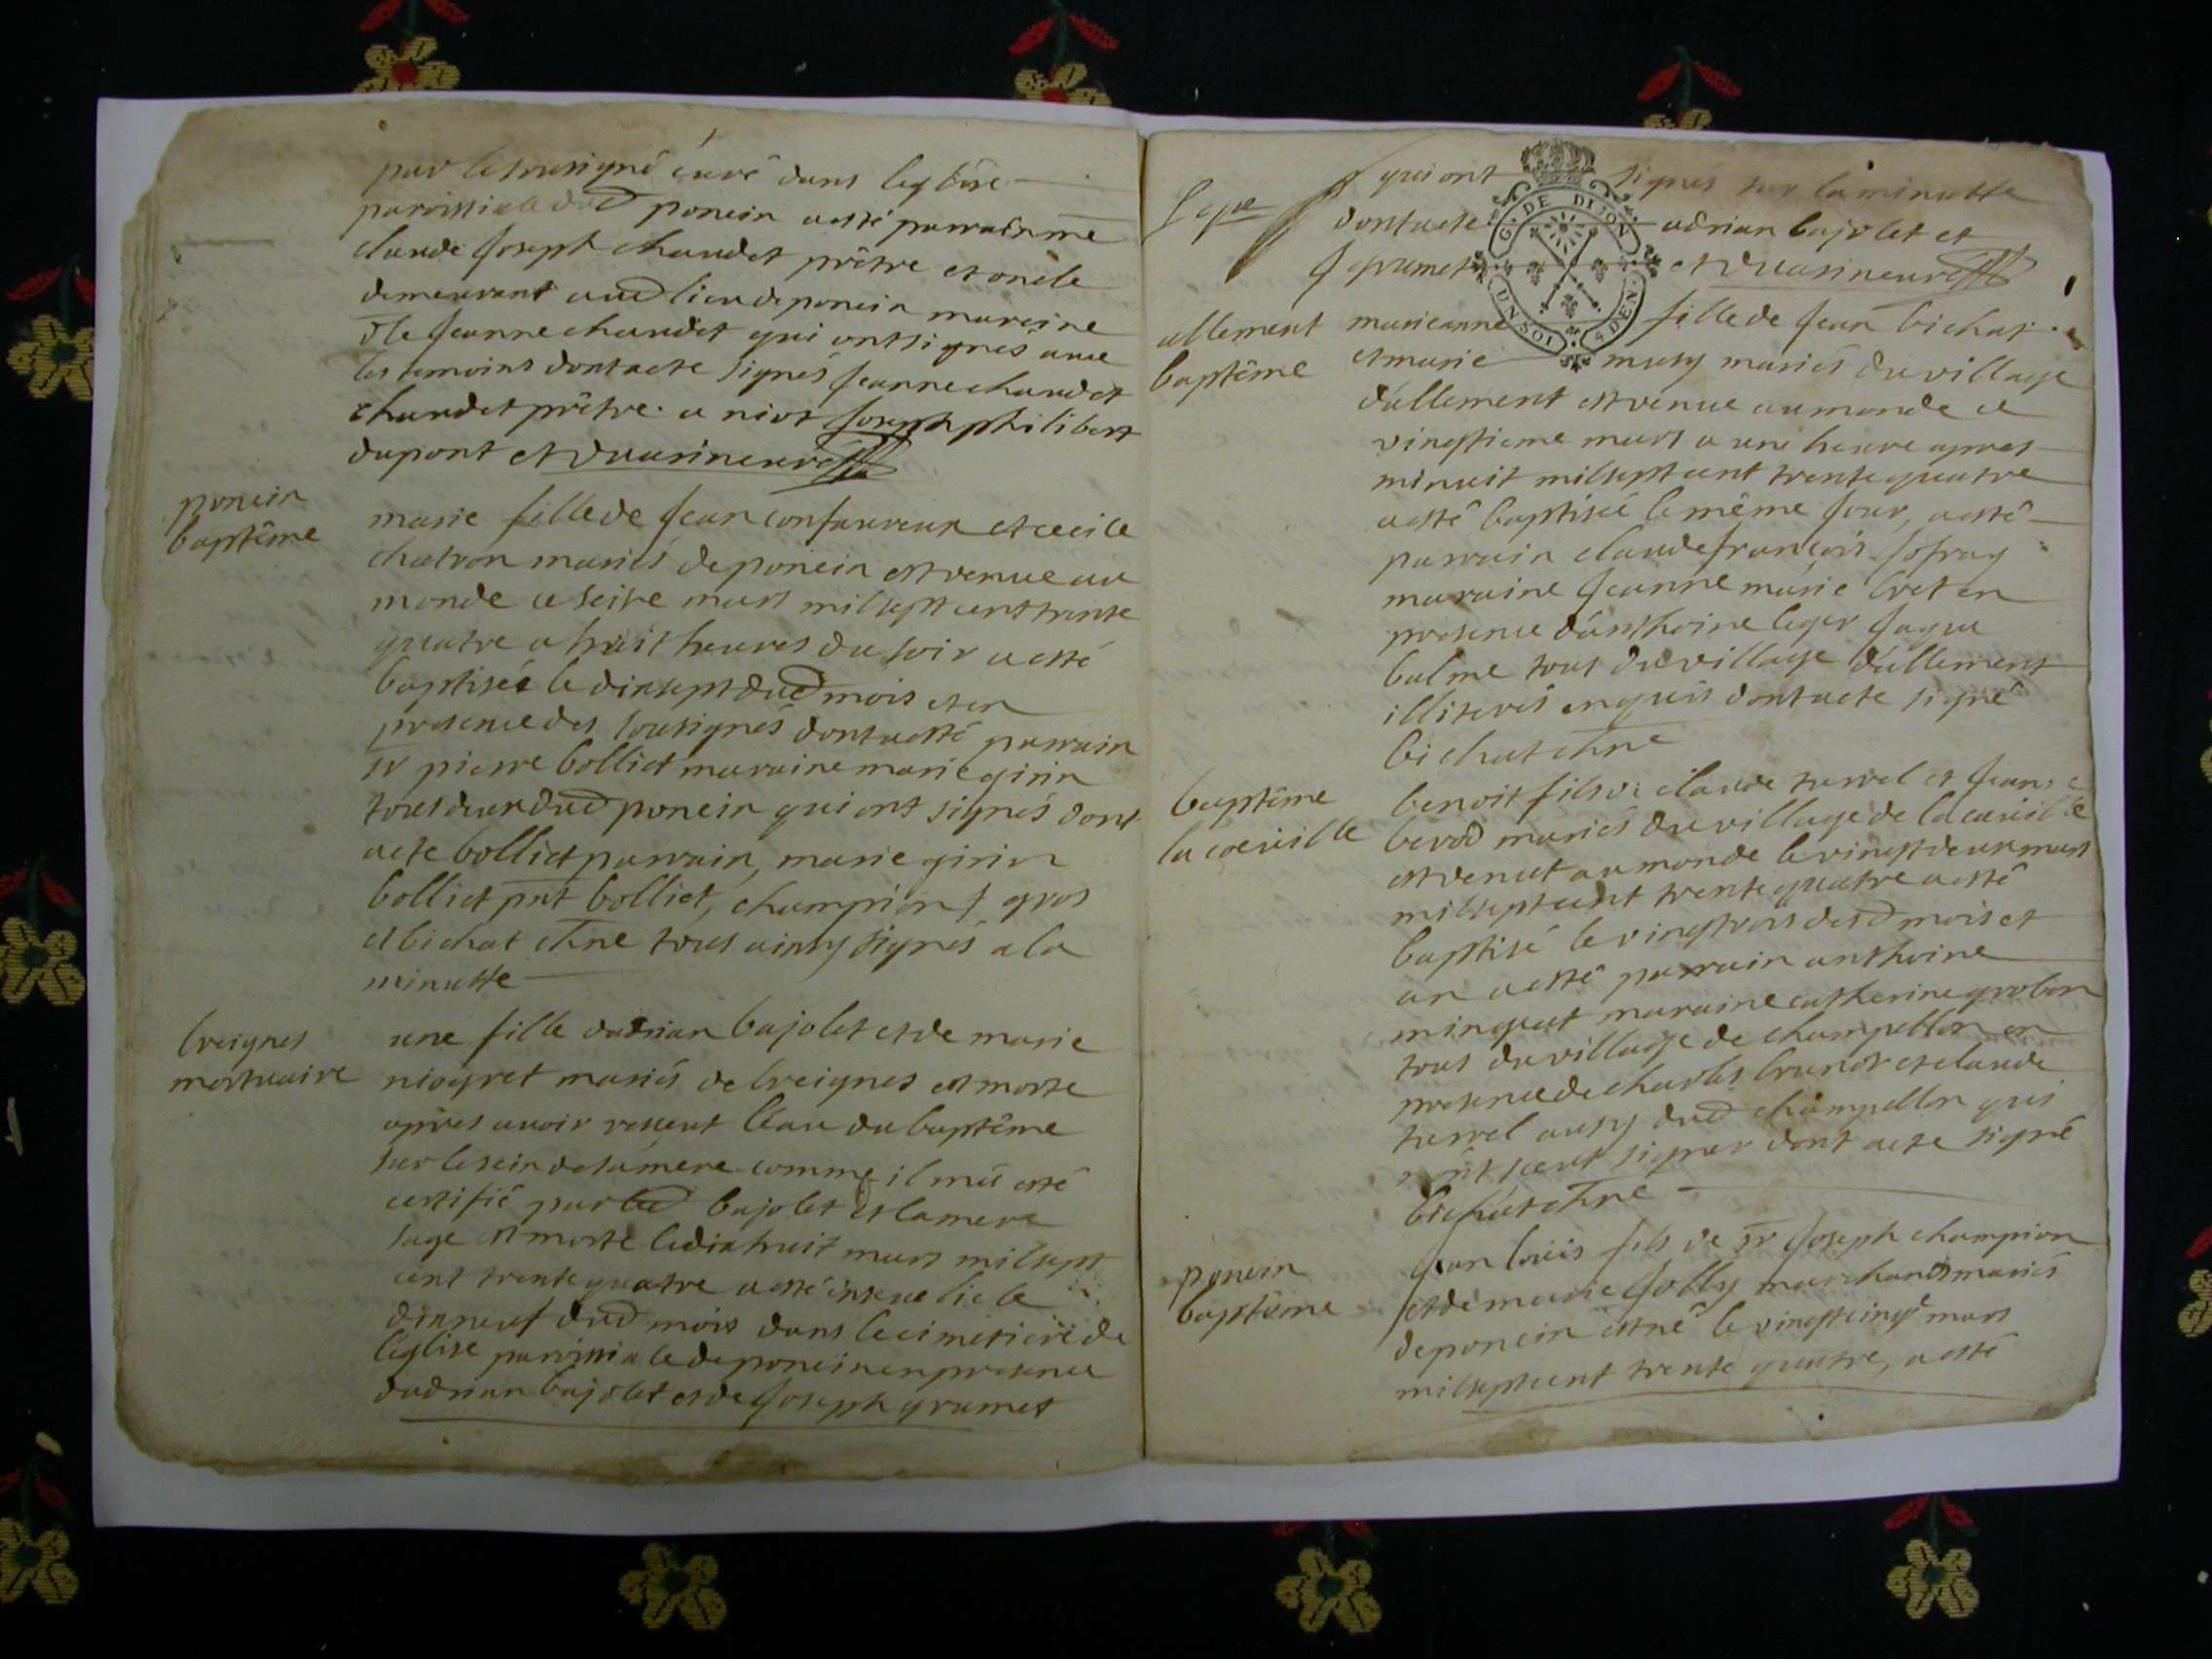 par le sousigné curé dans leglise
paroissiale dud poncin a esté parrain mre
claude joseph chaudet prêtre et oncle
demeurant aud lieu de poncin maraine
dlle jeanne chaudet qui ont signés avec
les temoins dont acte signés jeanne chaudet
chaudet prêtre a niot joseph philibert
dupont et
poncin
baptême
marie fille de jean confavreux et cecile
chatron mariés de poncin est venue au
monde ce seise mars mil sept cent trente
quatre a huit heures du soir a esté
baptisée le dixsept dud mois et en
presence des sousignés dont a esté parrain
sr pierre bolliet maraine marie girin
tous deux dud poncin qui ont signés dont
acte bolliet parrain, marie girin
bolliet pnt bolliet, champion j gros
et bichat chne tous ainsy signés a la
minutte
breignes
mortuaire
une fille dadrian bajolet et de marie
niogret mariés de breignes est morte
apres avoir resseut leau du baptême
sur le sein de sa mere comme il mã esté
certifié par led bajolet et la mere
sage est morte le dixhuit mars mil sept
cent trente quatre a esté ensevelie le
dixneuf dud mois dans le cimetiere de
léglise paroissiale de poncin en presence
dadrian bajolet et de joseph grumet
qui ont signés sur la minutte
dont acte adrian bajolet et
j grumet et
allement
baptême
marie anne fille de jean bichat
et marie musy mariés du village
dallement est venue au monde ce
vingtieme mars a une heure apres
minuit mil sept cent trente quatre
a esté baptisée le même jour, a esté
parrain claude françois jofray
maraine jeanne marie bret en
presence danthoine leger jaque
balme tous du village dallement
illiterés enquis dont acte signé
bichat chne
baptême
la coeuille
benoit fils de claude turrel et jeanne
berod mariés du village de la cueille
est venut au monde le vingtdeux mars
mil sept cent trente quatre a esté
baptisé le vingtrois desd mois et
an a esté parrain anthoine
minguet maraine catherine grobon
tous du village de champollon en
presence de charles brunet et claude
turrel ausy dud champollon qui
nont sceut signer dont acte signé
bichat chne
poncin
baptême
jean loüis fils de sr joseph champion
et de marie jolly marchands mariés
de poncin est né le vingtcinq mars
mil sept cent trente quatre, a esté
G. DE DIJON
UN SOL 4 DEN.